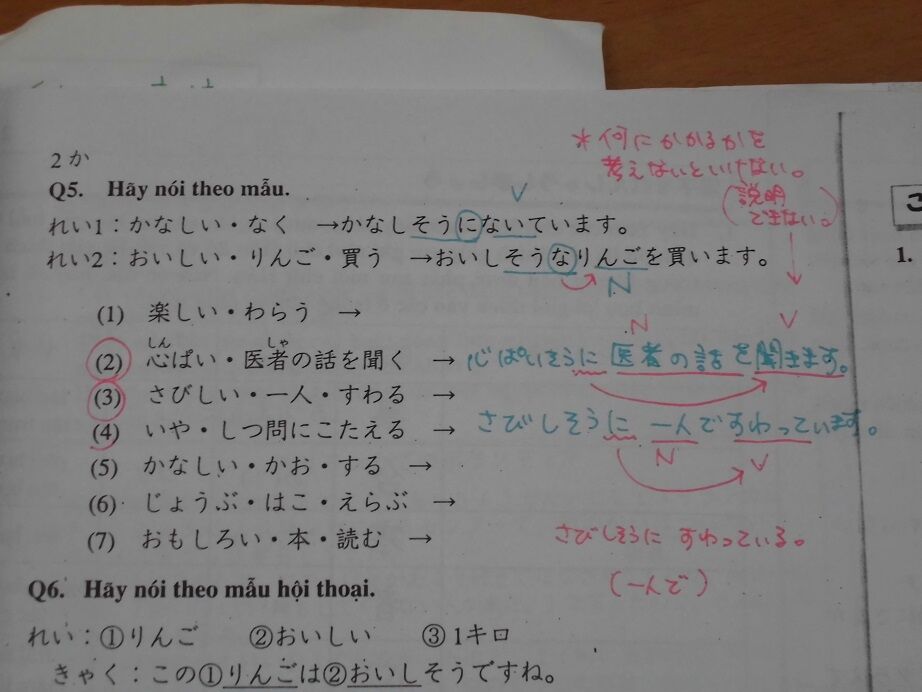 2か
*何にかかるかを
考えないといけない。
(説明
できない。)
Q5. Hãy nói theo mẫu.
V
れい1:かなしい・なく →かなしそうにないています。
れい2:おいしい・りんご・買う →おいしそうなりんごを買います。
N
1.
(1) 楽しい・わらう →
N V
しん しゃ
(2) 心ぱい・医者の話を聞く → 心ぱいそうに 医者の話を聞きます。
(3) さびしい・一人・すわる →
さびしそうに 一人ですわっています。
(4) いや・しつ問にこたえる →
N V
(5) かなしい・かお・する →
(6) じょうぶ・はこ・えらぶ →
(7) おもしろい・本・読む →
さびしそうに すわっている。
(一人で)
Q6. Hãy nói theo mẫu hội thoại.
れい:①りんご ②おいしい ③1キロ
きゃく:この①りんごは②おいしそうですね。